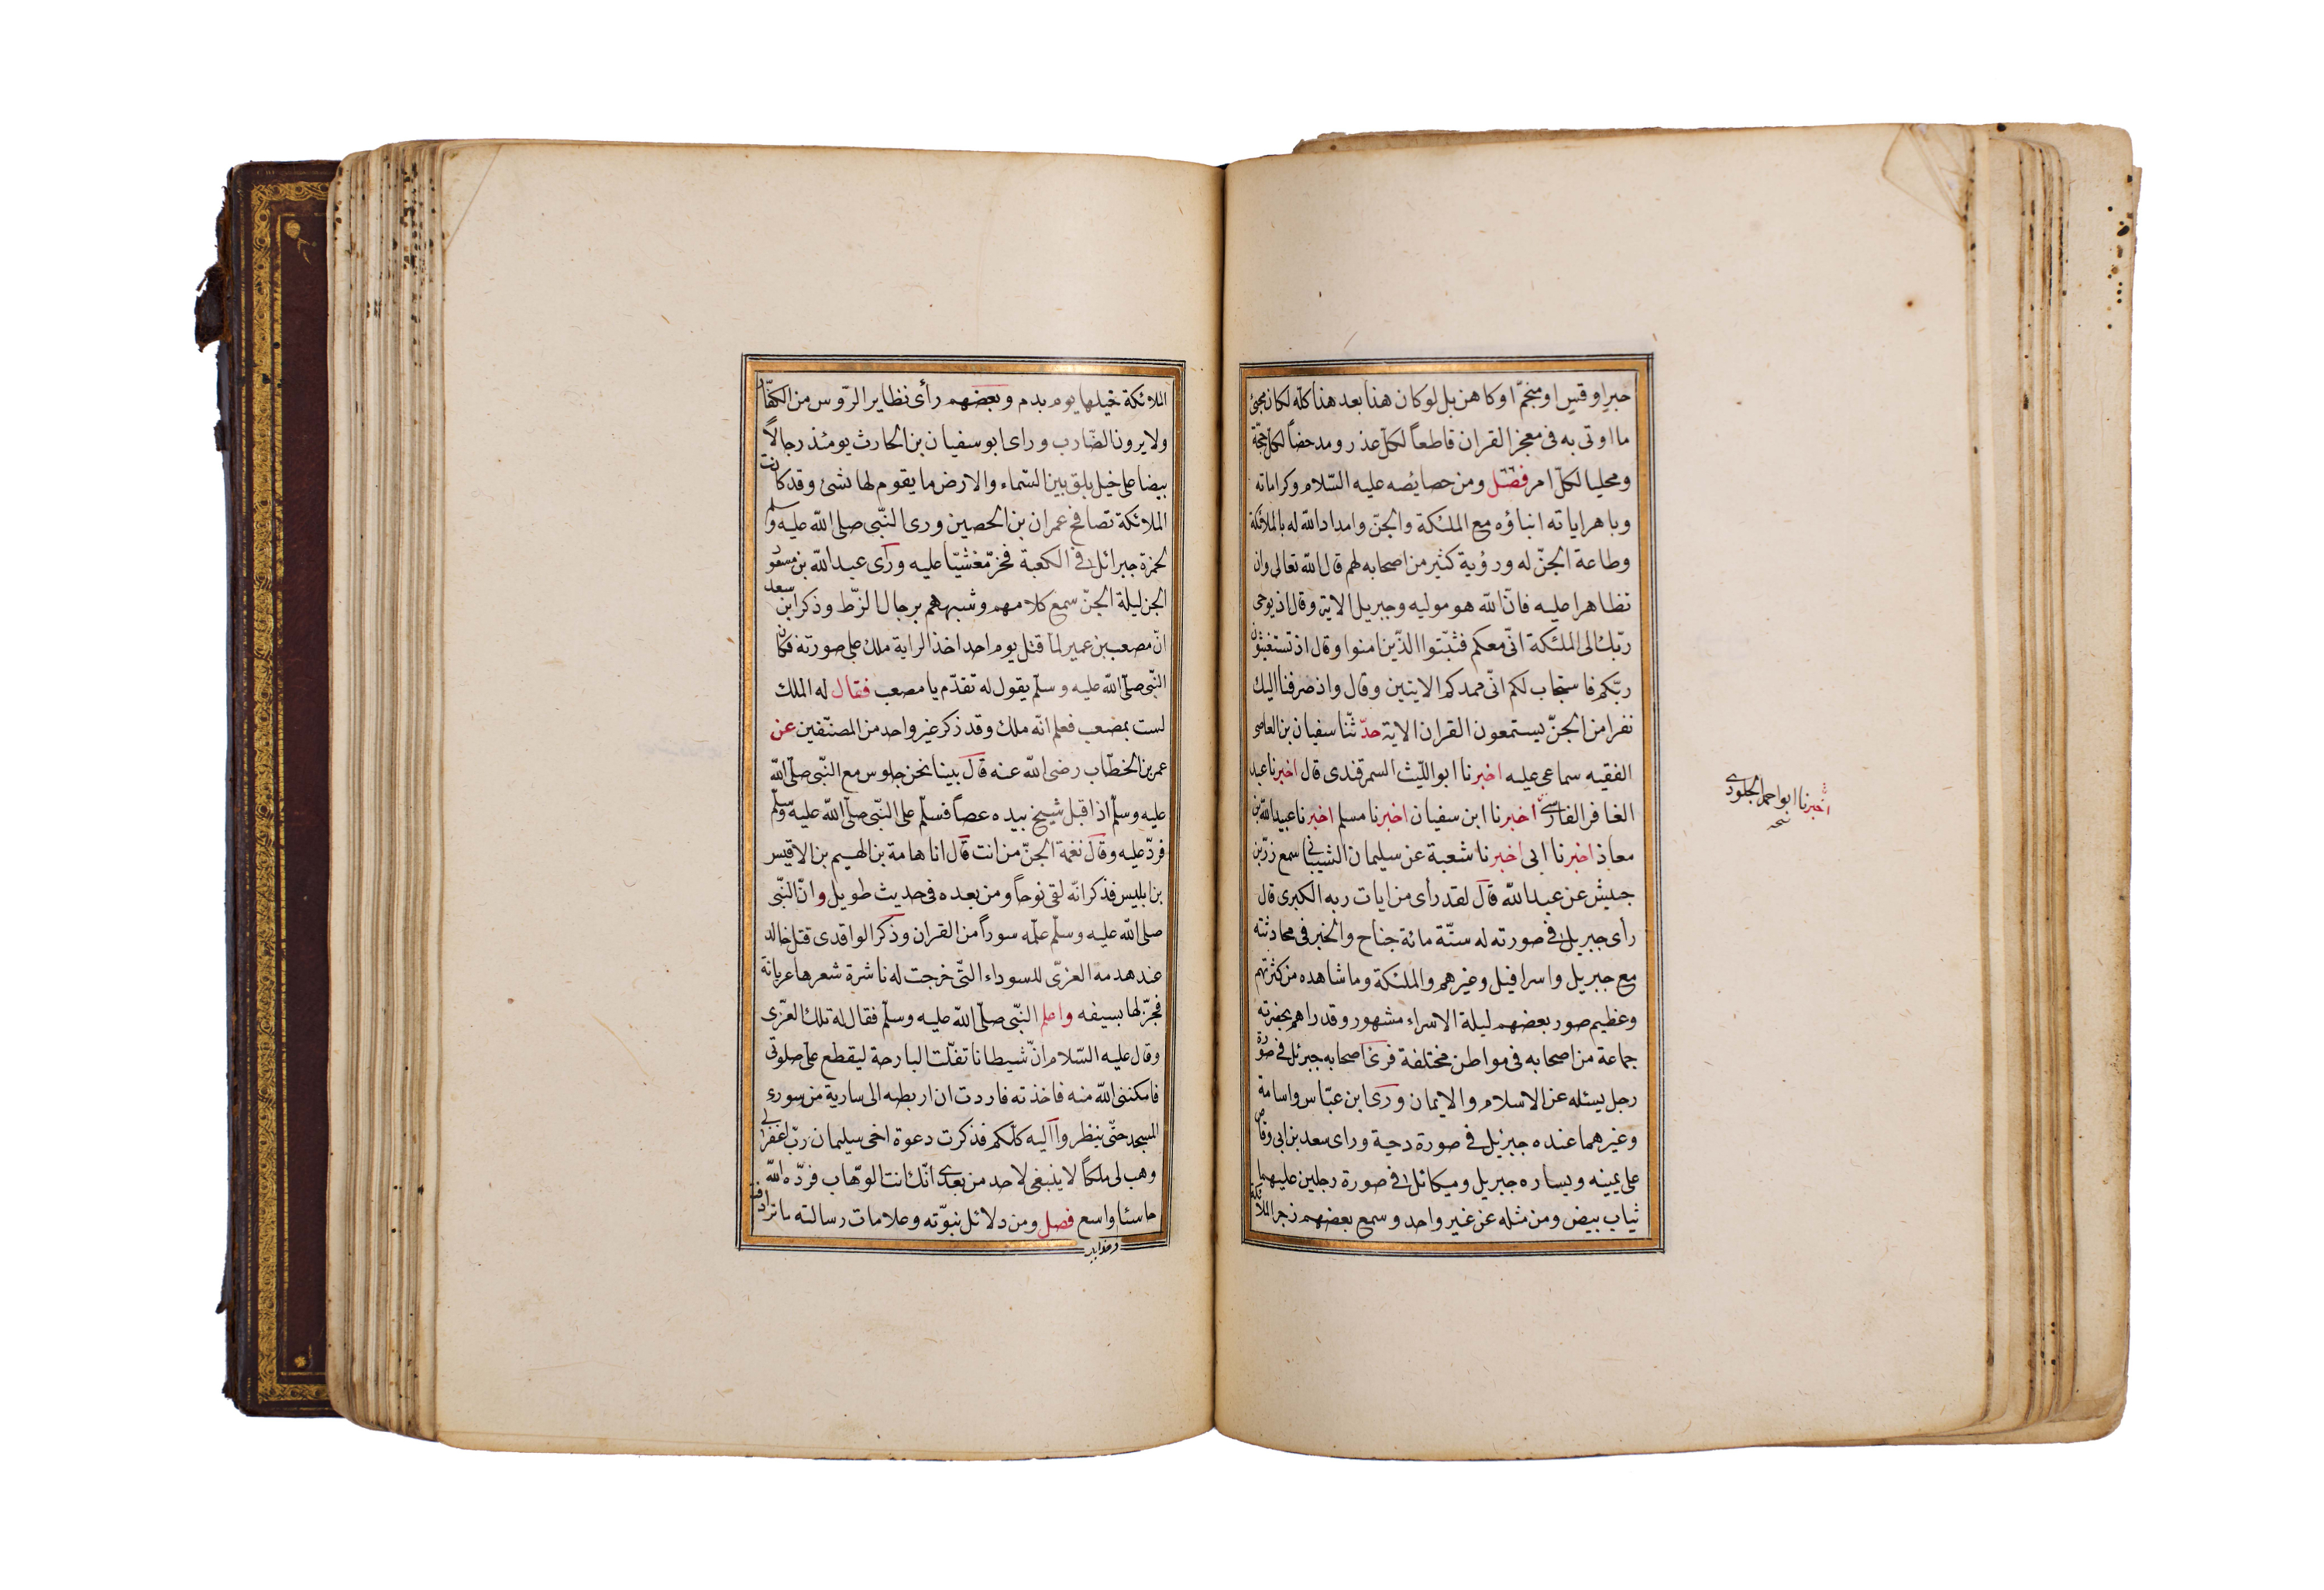 حبر او قس او منجم او كاهن بل لو كان هذا بعد هذا كله لكان مجئ
ما اوتى به فى معجز القران قاطعاً لكل عذر ومدحضاً لكل حجة
ومجليا لكل امر فصل ومن خصائصه عليه السلام وكراماته
وباهر اياته انباؤه مع الملئكة والجن وامداد الله له بالملائكة
وطاعة الجن له ورؤية كثير من اصحابه لهم قال الله تعالى وان
تظاهرا عليه فان الله هو موليه وجبريل الاية وقال اذ يوحى
ربك الى الملئكة انى معكم فثبتوا الذين امنوا وقال اذ تستغيثون
ربكم فاستجاب لكم انى ممدكم الايتين وقال واذ صرفنا اليك
نفرا من الجن يستمعون القران الاية حدثنا سفيان بن العاصى
الفقيه سماعى عليه اخبرنا ابو الليث السمرقندى قال اخبرنا عبد
الغافر الفارسى اخبرنا ابن سفيان اخبرنا مسلم اخبرنا عبيد الله بن
معاذ اخبرنا ابى اخبرنا شعبة عن سليمان الشيبانى سمع زر بن
حبيش عن عبد الله قال لقد رأى من ايات ربه الكبرى قال
رأى جبريل فى صورته له ستة مائة جناح والخبر فى محادثته
مع جبريل واسرافيل وغيرهم والملئكة وما شاهده من كثرتهم
وعظيم صور بعضهم ليلة الاسراء مشهور وقد راهم بحضرته
جماعة من اصحابه فى مواطن مختلفة فرئ اصحابه جبرئل فى صورة
رجل يسئله عن الاسلام والايمان ورئ ابن عباس واسامة
وغيرهما عنده جبرئيل فى صورة دحية وراى سعد بن ابى وقاص
على يمينه ويساره جبريل وميكائل فى صورة رجلين عليهما
ثياب بيض ومن مثله عن غير واحد وسمع بعضهم زجر الملائكة
اخبرنا ابو احمد الجلودى
الملائكة خيلها يوم بدم وبعضهم رأى نظاير الروس من الكفار
ولا يرون الضارب وراى ابو سفيان بن الحارث يومئذ رجالاً
بيضا على خيل بلق بين السماء والارض ما يقوم لها شئ وقد كانت
الملائكة تصافح عمران بن الحصين ورى النبى صلى الله عليه وسلم
لحمزة جبرائل فى الكعبة فخر مغشيا عليه ورأى عبد الله بن مسعود
الجن ليلة الجن سمع كلامهم وشبههم برجال الزط وذكر ابن سعد
ان مصعب بن عمير لما قتل يوم احد اخذ الراية ملك على صورته فكان
النبى صلى الله عليه وسلم يقول له تقدم يا مصعب فقال له الملك
لست بمصعب فعلم انه ملك وقد ذكر غير واحد من المصنفين عن
عمر بن الخطاب رضى الله عنه قال بينا نحن جلوس مع النبى صلى الله
عليه وسلم اذ اقبل شيخ بيده عصاً فسلم على النبى صلى الله عليه وسلم
فرد عليه وقال نغمة الجن من انت قال انا هامة بن الهيم بن الاقيس
بن ابليس فذكر انه لقى نوحاً ومن بعده فى حديث طويل وان النبى
صلى الله عليه وسلم علمه سوراً من القران وذكر الواقدى قتل خالد
عند هدمه العزى للسوداء التى خرجت له ناشرة شعرها عريانة
فجزلها بسيفه واعلم النبى صلى الله عليه وسلم فقال له تلك العزى
وقال عليه السلام ان شيطانا تفلت البارحة ليقطع على صلوتى
فامكننى الله منه فاخذته فاردت ان اربطه الى سارية من سورى
المسجد حتى ينظروا اليه كلكم فذكرت دعوة اخى سليمان رب اغفر لى
وهب لى ملكاً لا ينبغى لاحد من بعدى انك انت الوهاب فرده الله
خاسئا واسع فصل ومن دلائل نبوته وعلامات رسالته ما ترادفت